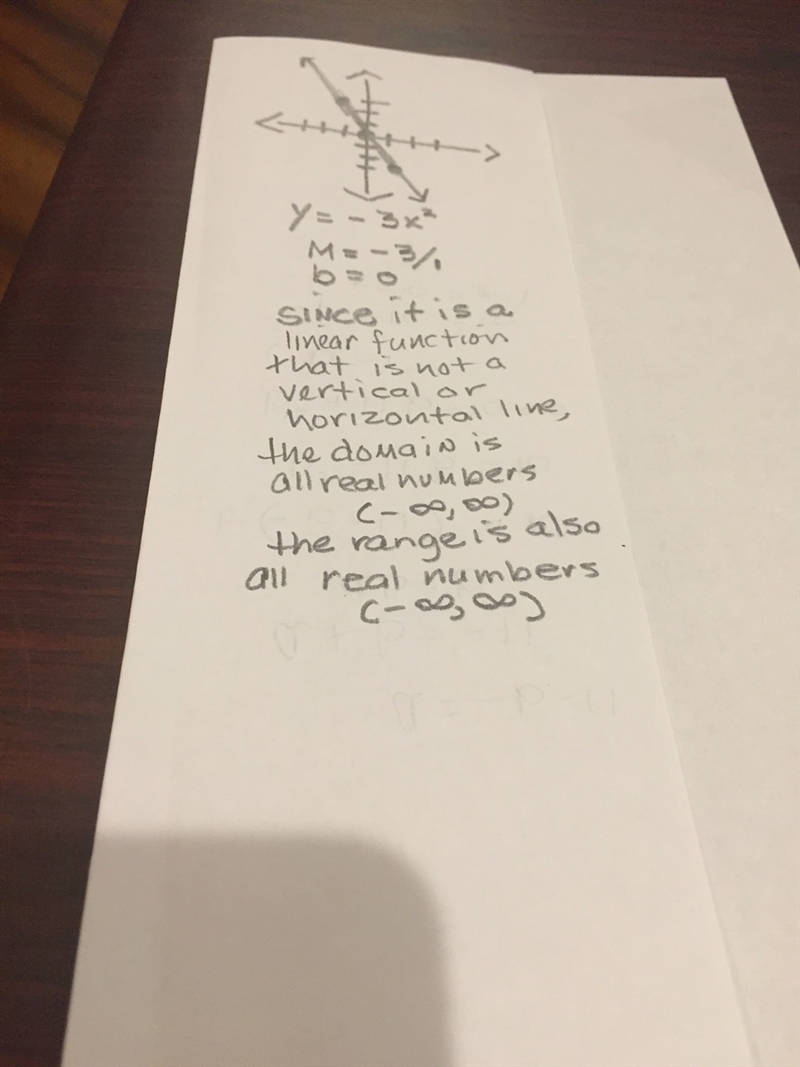 y = - 3x²
M = - 3/1
b = 0
SINCE it is a
linear function
that is not a
vertical or
horizontal line,
the domain is
all real numbers
(- ∞, ∞)
the range is also
all real numbers
(- ∞, ∞)